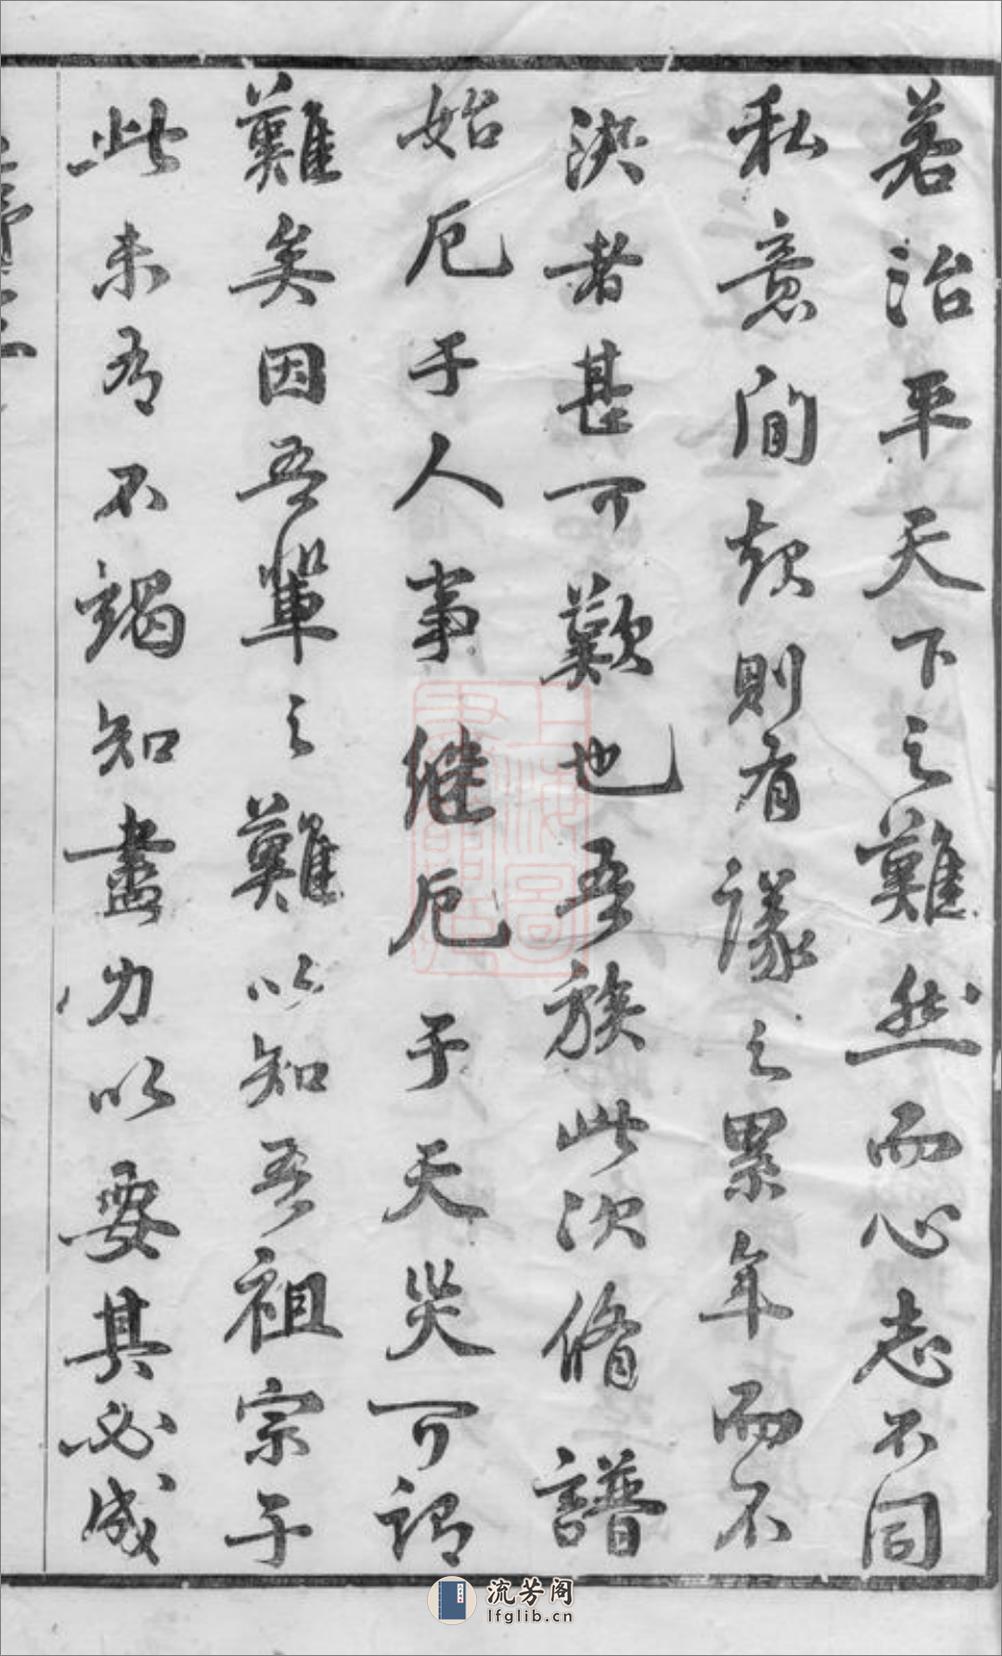 若治平天下之難然而心志不同
私意間起則有議之累年而不
決者甚可歎也吾族此次脩譜
始厄于人事继厄于天災可謂
難矣因吾輩之難以知吾祖宗于
此未有不竭知盡力以要其必成
流芳阁
lfglib.cn